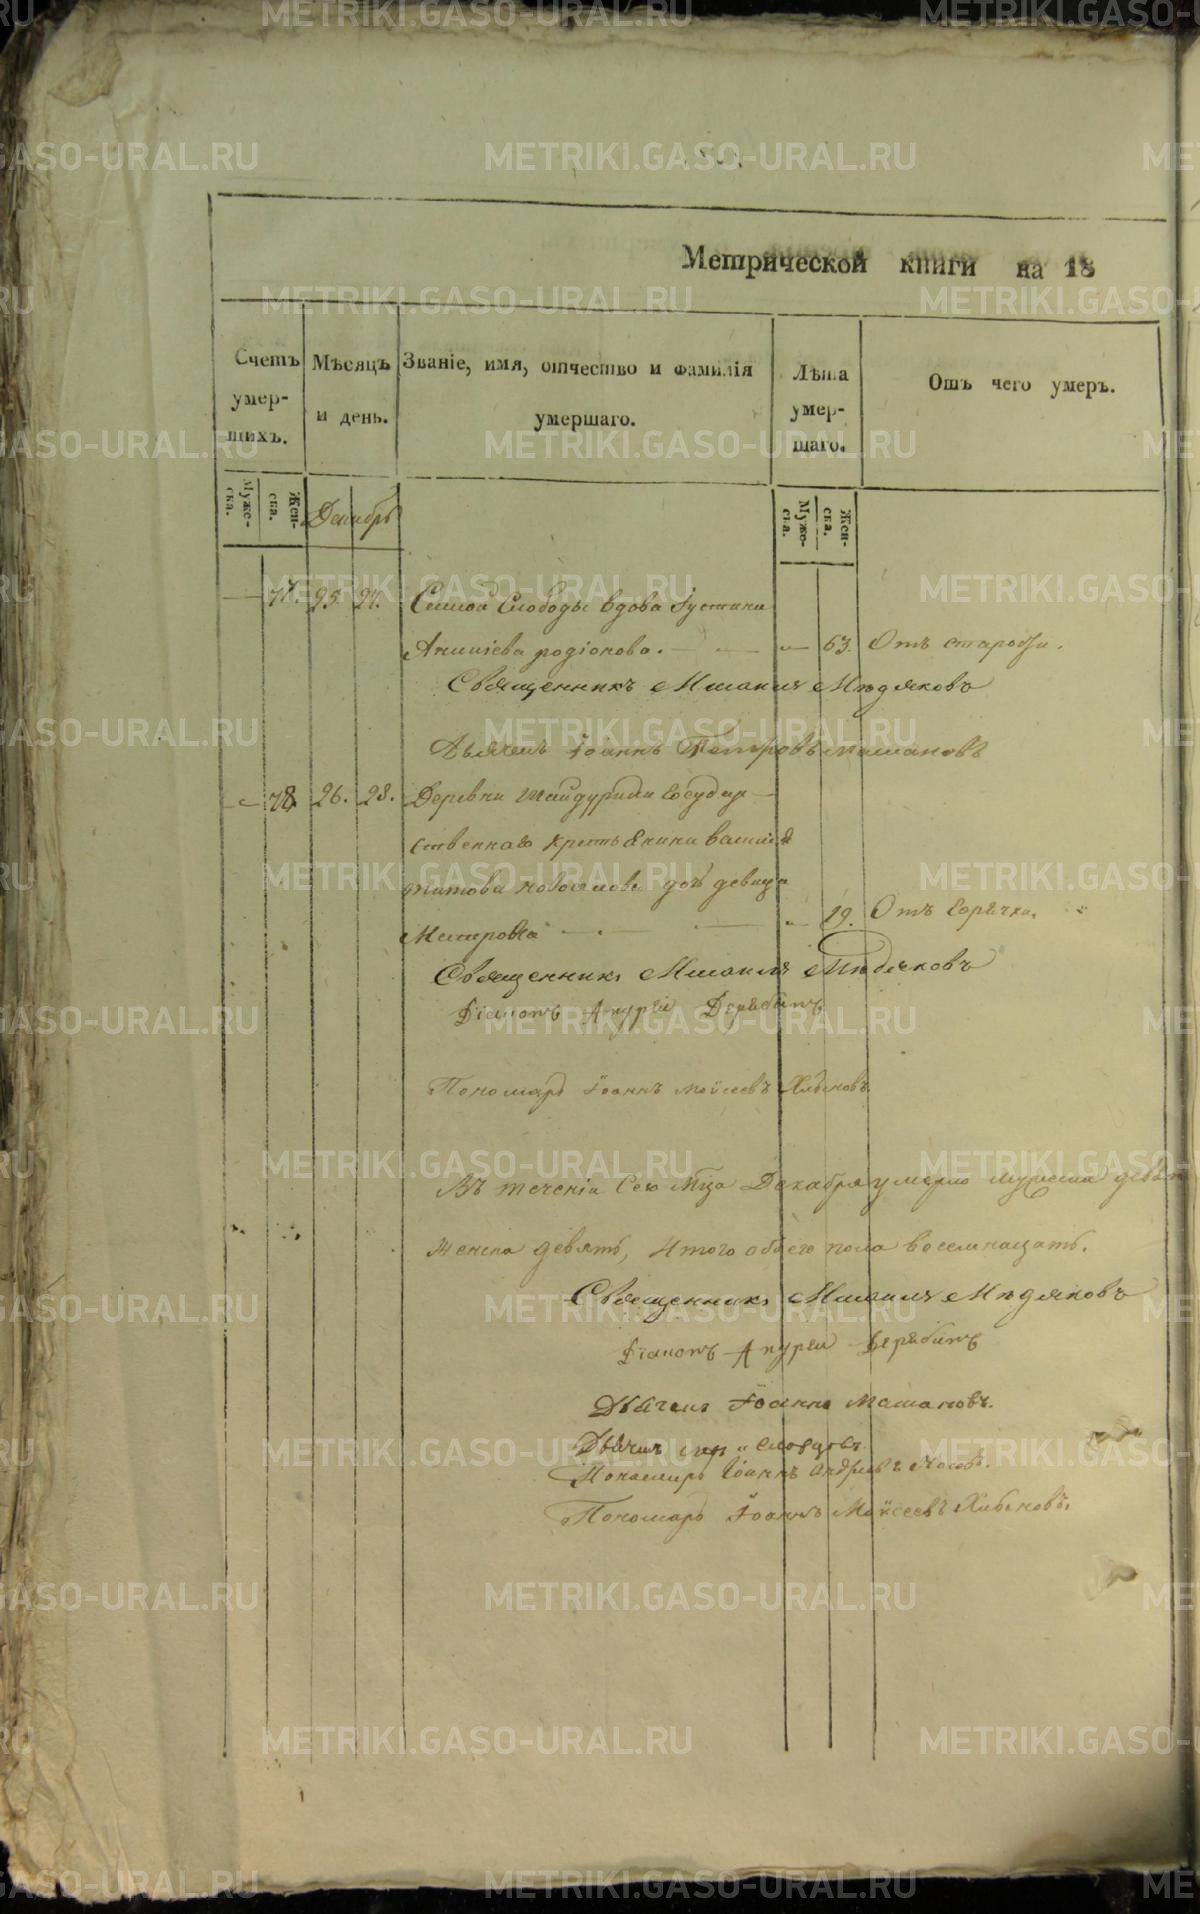 METRIKI.GASO-URAL.RU
Метрической книги на 18
Счетъ умер-шихъ.
Мѣсяцъ и день.
Званіе, имя, отчество и фамилія умершаго.
Лѣта умер-шаго.
Отъ чего умеръ.
Муже-ска.
Жен-ска.
Декабрь
Муже-ска.
Жен-ска.
— 77. 25. 27. Слободы вдова Іустина
родіонова. — — „ 63. Отъ старости.
Священникъ Михаилъ Мѣдяковъ
Дьячекъ Іоаннъ Петровъ Машановъ
78. 26. 28. Деревни Шайдурихи Государ-
ственнаго крестьянина
титова дочь девица
„ 19. Отъ Горячки.
Священникъ Михаилъ Мѣдяковъ
Діаконъ Андрей Дерябинъ
Пономарь Іоаннъ Моисеевъ Хлыновъ.
Въ теченіи Сего Мца Декабря умерло мужеска девять
Женска девять, Итого обоего пола восемнацать.
Священникъ Михаилъ Мѣдяковъ
Діаконъ Андрей Дерябинъ
Дьячекъ Іоаннъ Машановъ.
Дьячекъ Словцовъ
Пономарь Іоаннъ Андреевъ
Пономарь Іоаннъ Моисеевъ Хлыновъ.